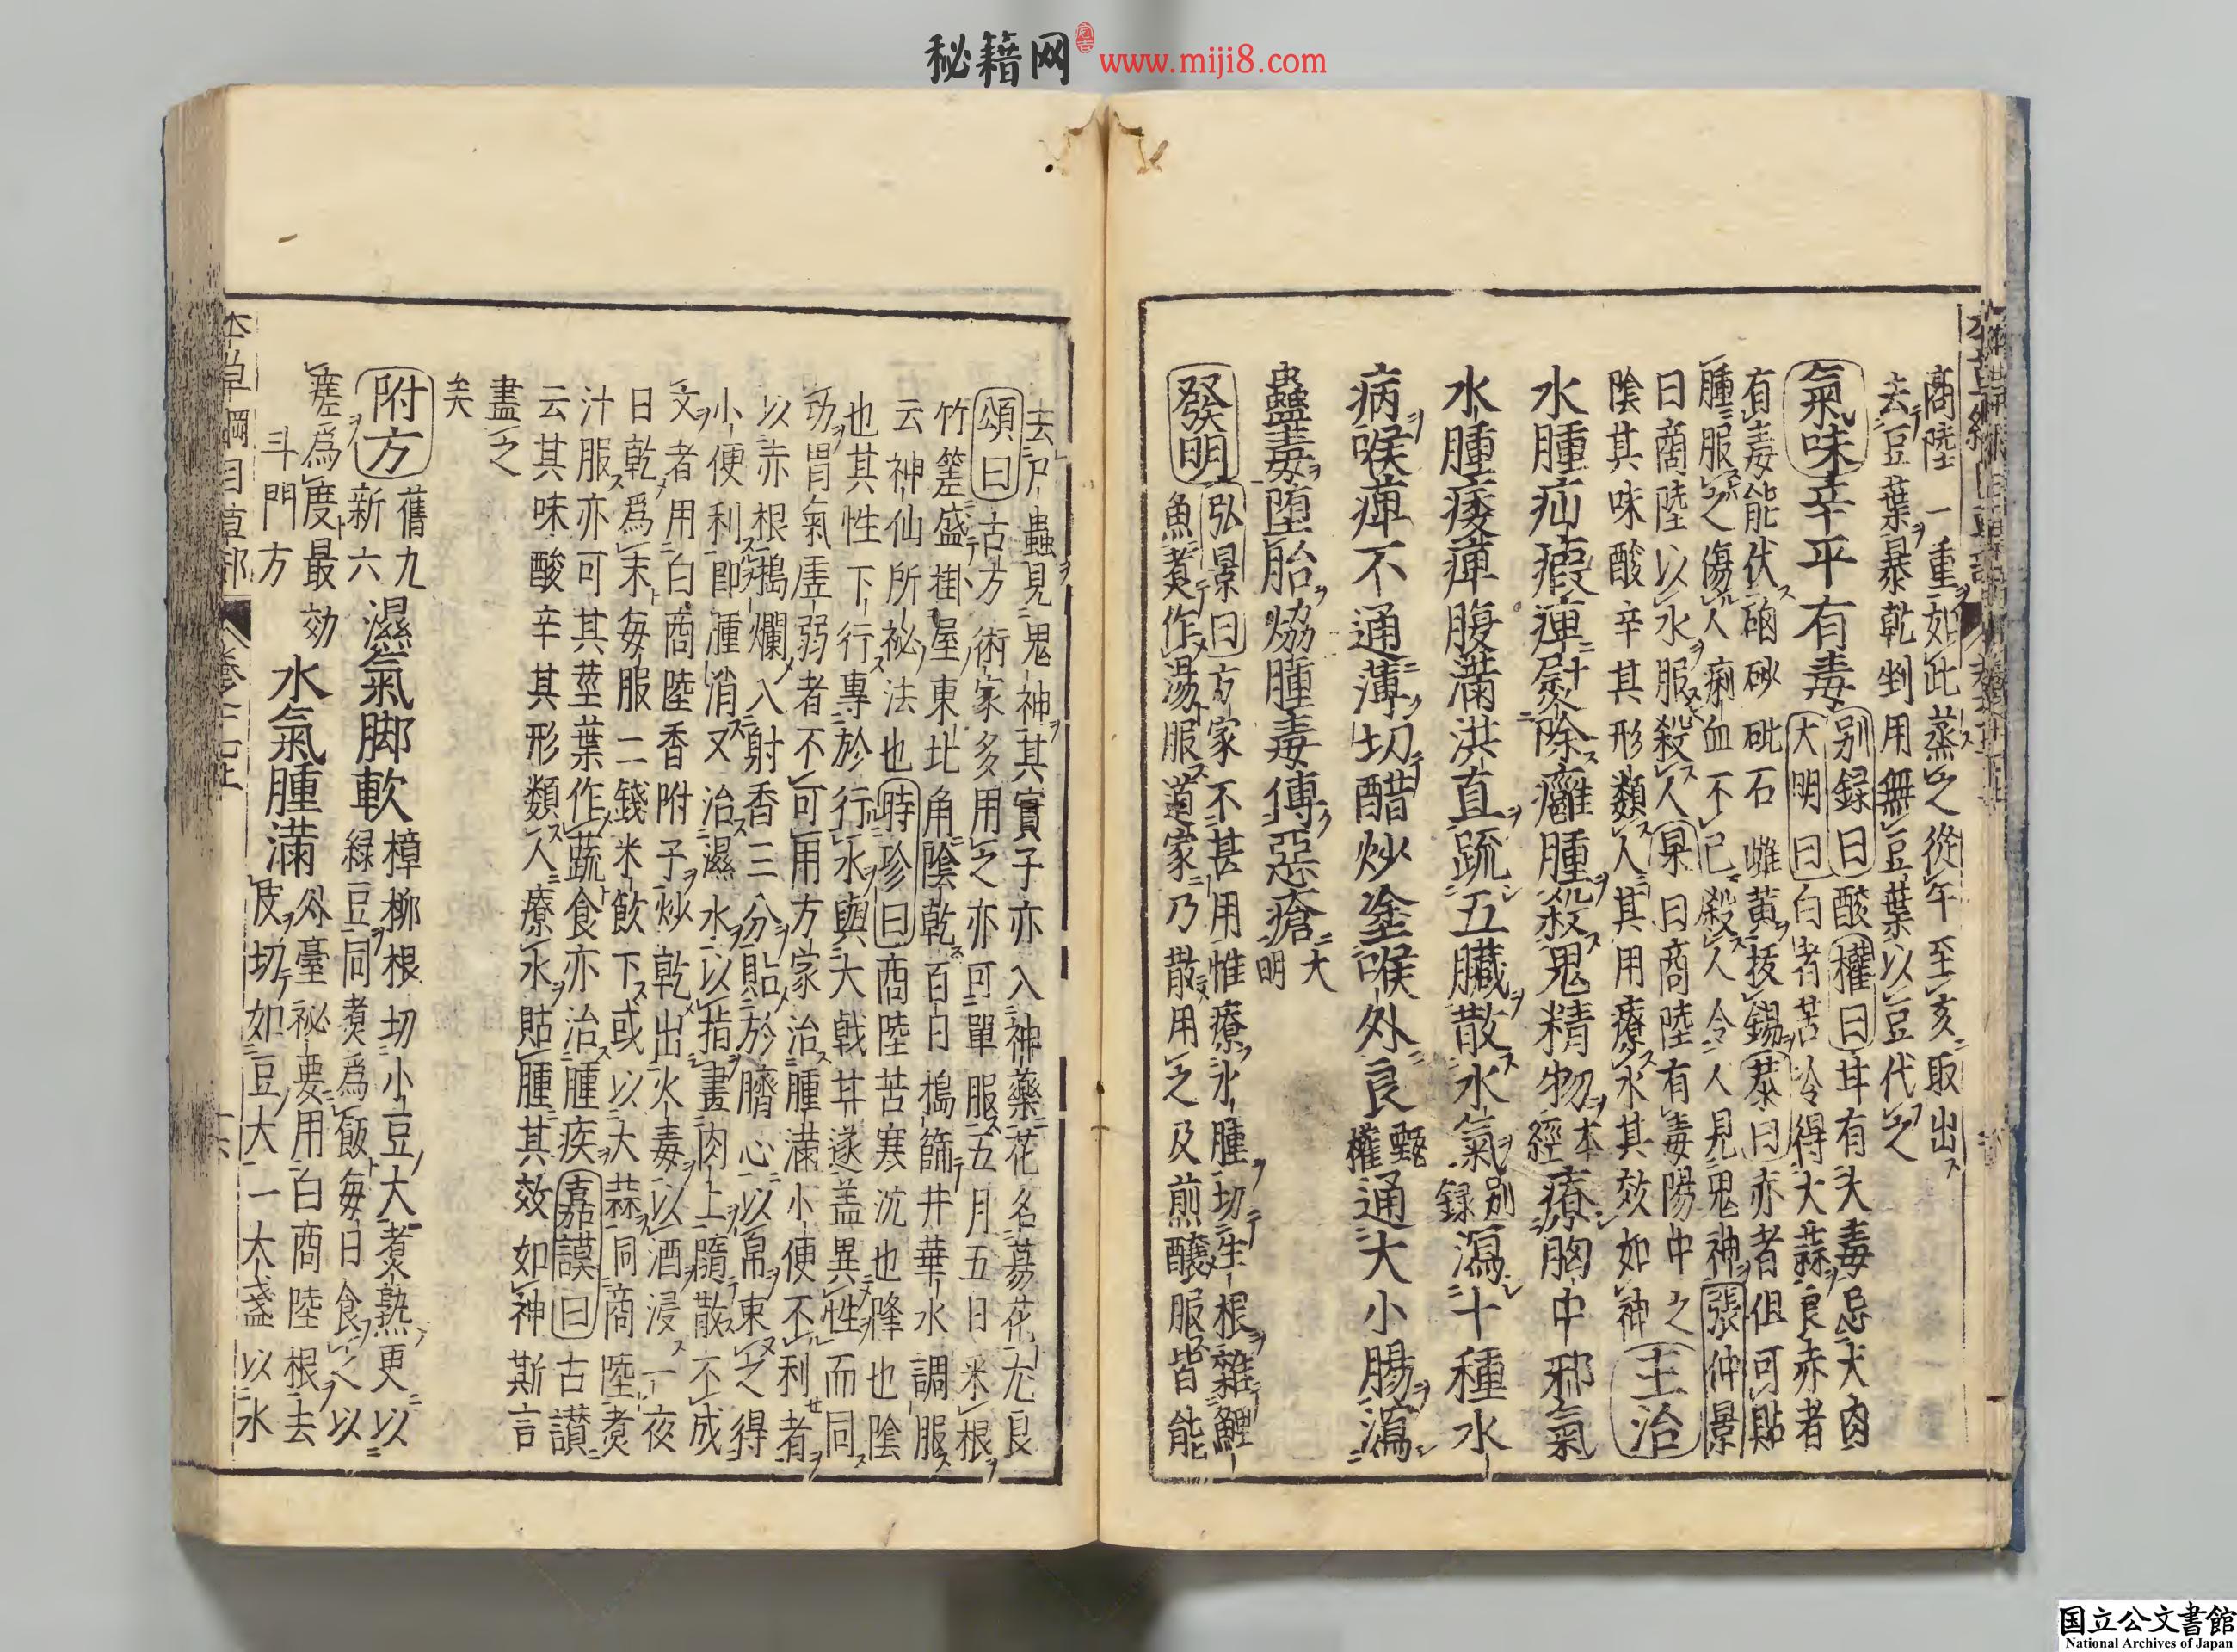 秘籍网 www.miji8.com
商陸一重如此蒸之從午至亥取出
去豆葉暴乾剉用無豆葉以豆代之
氣味辛平有毒別録曰酸權曰甘有大毒忌犬肉
大明曰白者苦冷得大蒜良赤者
有毒能伏硇砂砒石雌黃拔錫恭曰亦者但可貼
腫服之傷人痢血不已殺人令人見鬼神張仲景
曰商陸以水服殺人杲曰商陸有毒陽中之
陰其味酸辛其形類人其用療水其效如神主治
水腫疝瘕痺熨除癰腫殺鬼精物本經療胸中邪氣
水腫痿痺腹滿洪直疏五臟散水氣別録瀉十種水
病喉痺不通薄切醋炒塗喉外良甄權通大小腸瀉
蠱毒墮胎熁腫毒傅惡瘡大明
發明弘景曰方家不甚用惟療水腫切生根雜鯉
魚煮作湯服道家乃散用之及煎釀服皆能
去尸蟲見鬼神其實子亦入神藥花名蕩花尤良
頌曰古方術家多用之亦可單服五月五日采根
竹筐盛掛屋東北角陰乾百日搗篩井華水調服
云神仙所祕法也時珍曰商陸苦寒沉也降也陰
也其性下行專於行水與大戟甘遂蓋異性而同
功胃氣虛弱者不可用方家治腫滿小便不利者
以赤根搗爛入射香三分貼於臍心以帛束之得
小便利即腫消又治濕水以指畫肉上隨散不成
文者用白商陸香附子炒乾出火毒以酒浸一夜
日乾爲末每服二錢米飲下或以大蒜同商陸煮
汁服亦可其莖葉作蔬食亦治腫疾嘉謨曰古讃
云其味酸辛其形類人療水貼腫其效如神斯言
盡之
矣
附方舊九
新六濕氣脚軟樟柳根切小豆大煮熟更以
緑豆同煮爲飯每日食之以
瘥爲度最効
斗門方水氣腫滿外臺祕要用白商陸根去
皮切如豆大一大盞以水
本草綱目草部 卷之十七上
国立公文書館
National Archives of Japan